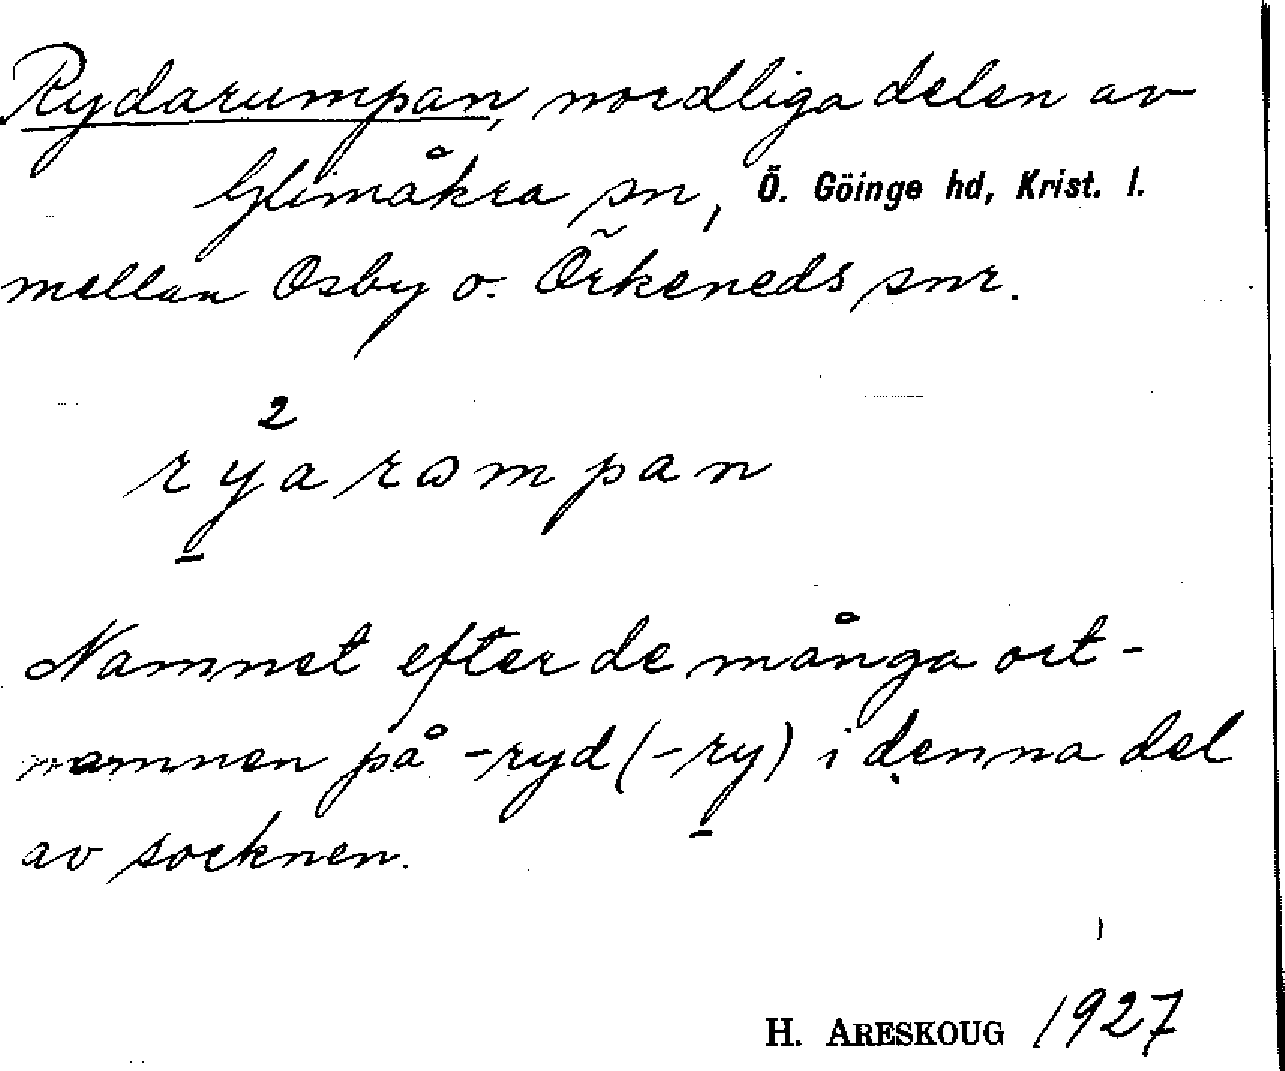 Rydarumpan, nordliga delen av
Glimåkra sn, Ö. Göinge hd, Krist. l.
mellan Osby o. Örkeneds snr.
2
ryarompan
Namnet efter de många ort-
namnen på -ryd (-ry) i denna del
av socknen.
H. ARESKOUG 1927